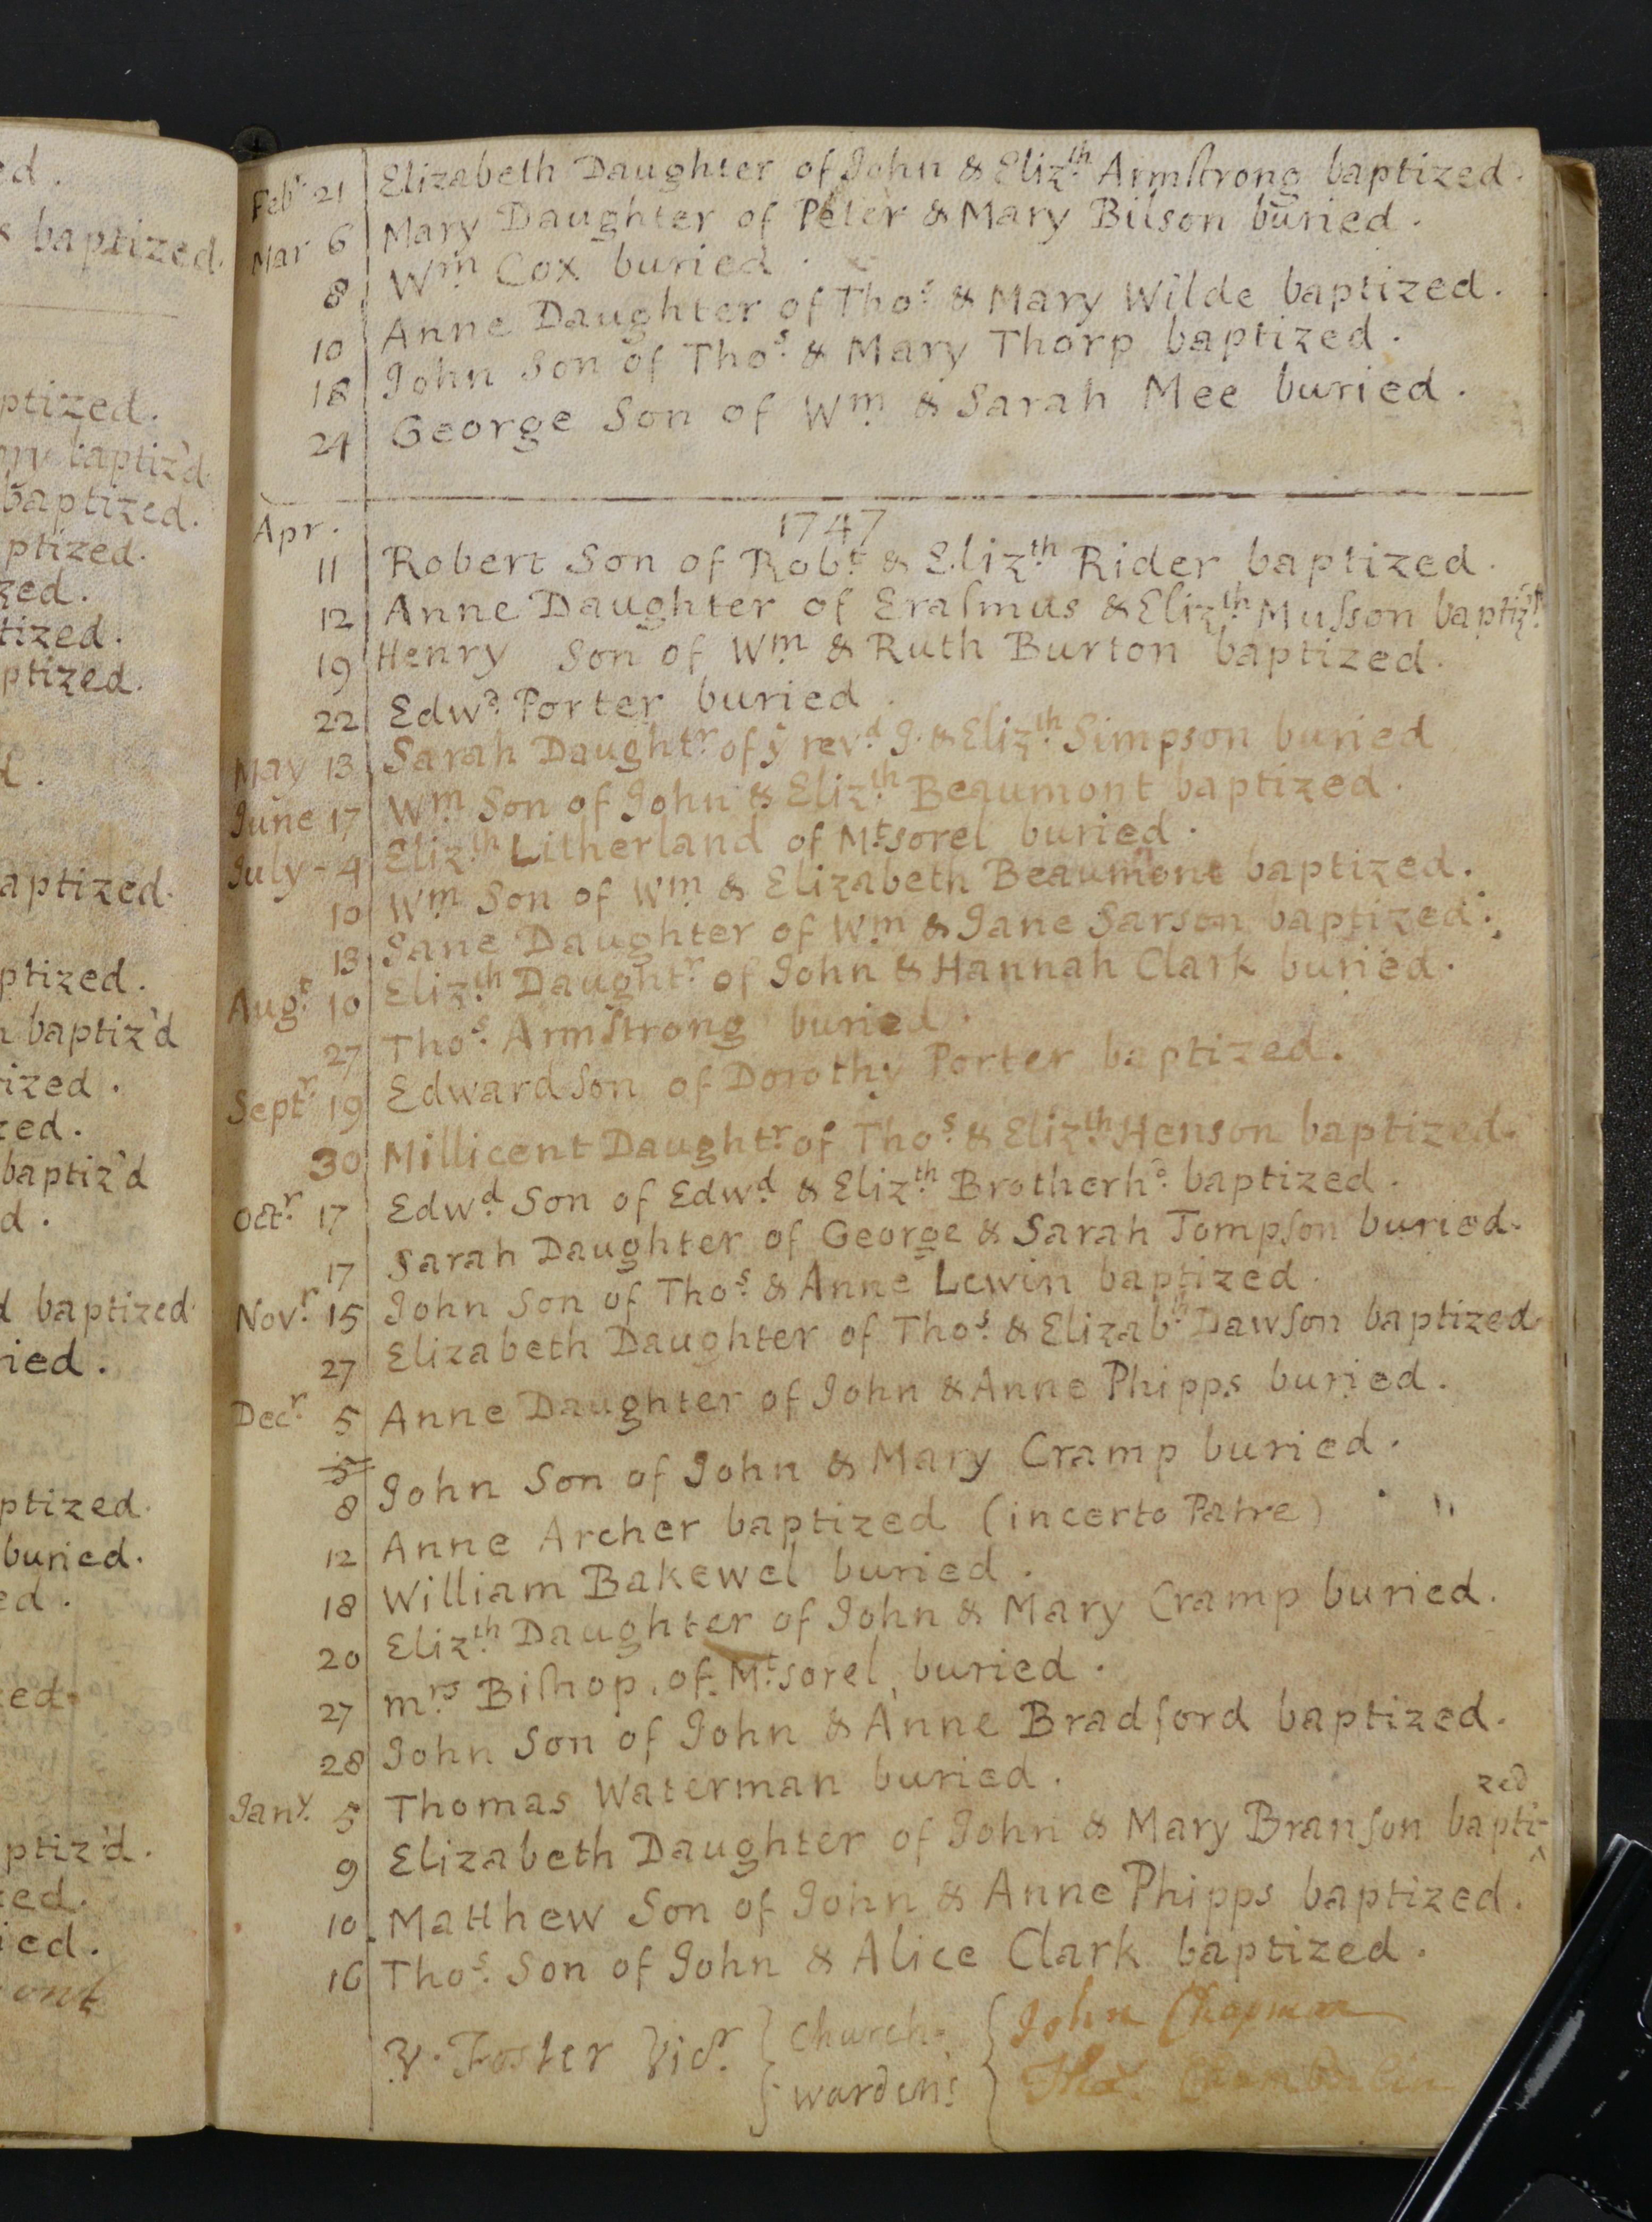 ed.
& baptized.
ptized.
ory baptiz'd.
baptized.
ptized.
zed.
tized.
ptized.
d.
aptized.
ptized.
n baptiz'd
ized.
zed.
baptiz'd
d.
d baptized
ried.
ptized.
buried.
ed.
zed.
ptiz'd.
zed.
ied.
ont
Febr. 21 Elizabeth Daughter of John & Elizth. Armſtrong baptized.
Mar 6 Mary Daughter of Peter & Mary Bilson buried.
8 Wm. Cox buried.
10 Anne Daughter of Thos. & Mary Wilde baptized.
18 John Son of Thos. & Mary Thorp baptized.
24 George Son of Wm. & Sarah Mee buried.
Apr. 1747
11 Robert Son of Robt. & Elizth. Rider baptized.
12 Anne Daughter of Eraſmus & Elizth. Muſson baptizd.
19 Henry Son of Wm. & Ruth Burton baptized.
22 Edwd. Porter buried.
May 13 Sarah Daughtr. of ÿ revd. J. & Elizth. Simpson buried
June 17 Wm. Son of John & Elizth. Beaumont baptized.
July - 4 Elizth. Litherland of Mt.sorel buried.
10 Wm. Son of Wm. & Elizabeth Beaumont baptized.
13 Jane Daughter of Wm. & Jane Sarson baptized.
Augt. 10 Elizth. Daughtr. of John & Hannah Clark buried.
27 Thos. Armſtrong buried.
Septr. 19 Edward Son of Dorothy Porter baptized.
30 Millicent Daughtr. of Thos. & Elizth. Henson baptized.
Octr. 17 Edwd. Son of Edwd. & Elizth. Brotherhd. baptized.
17 Sarah Daughter of George & Sarah Tompſon buried.
Novr. 15 John Son of Thos. & Anne Lewin baptized.
27 Elizabeth Daughter of Thos. & Elizabth. Dawſon baptized
Decr. 5 Anne Daughter of John & Anne Phipps buried.
5
8 John Son of John & Mary Cramp buried.
12 Anne Archer baptized (incerto Patre)
18 William Bakewel buried.
20 Elizth. Daughter of John & Mary Cramp buried.
27 mrs. Biſhop. of Mt.sorel, buried.
28 John Son of John & Anne Bradſord baptized.
Jany. 5 Thomas Waterman buried.
9 Elizabeth Daughter of John & Mary Branſon bapti-zed
10. Matthew Son of John & Anne Phipps baptized.
16 Thos. Son of John & Alice Clark baptized.
Foster Vicr. Church- John Chapman
wardens Thos. Chamberlin